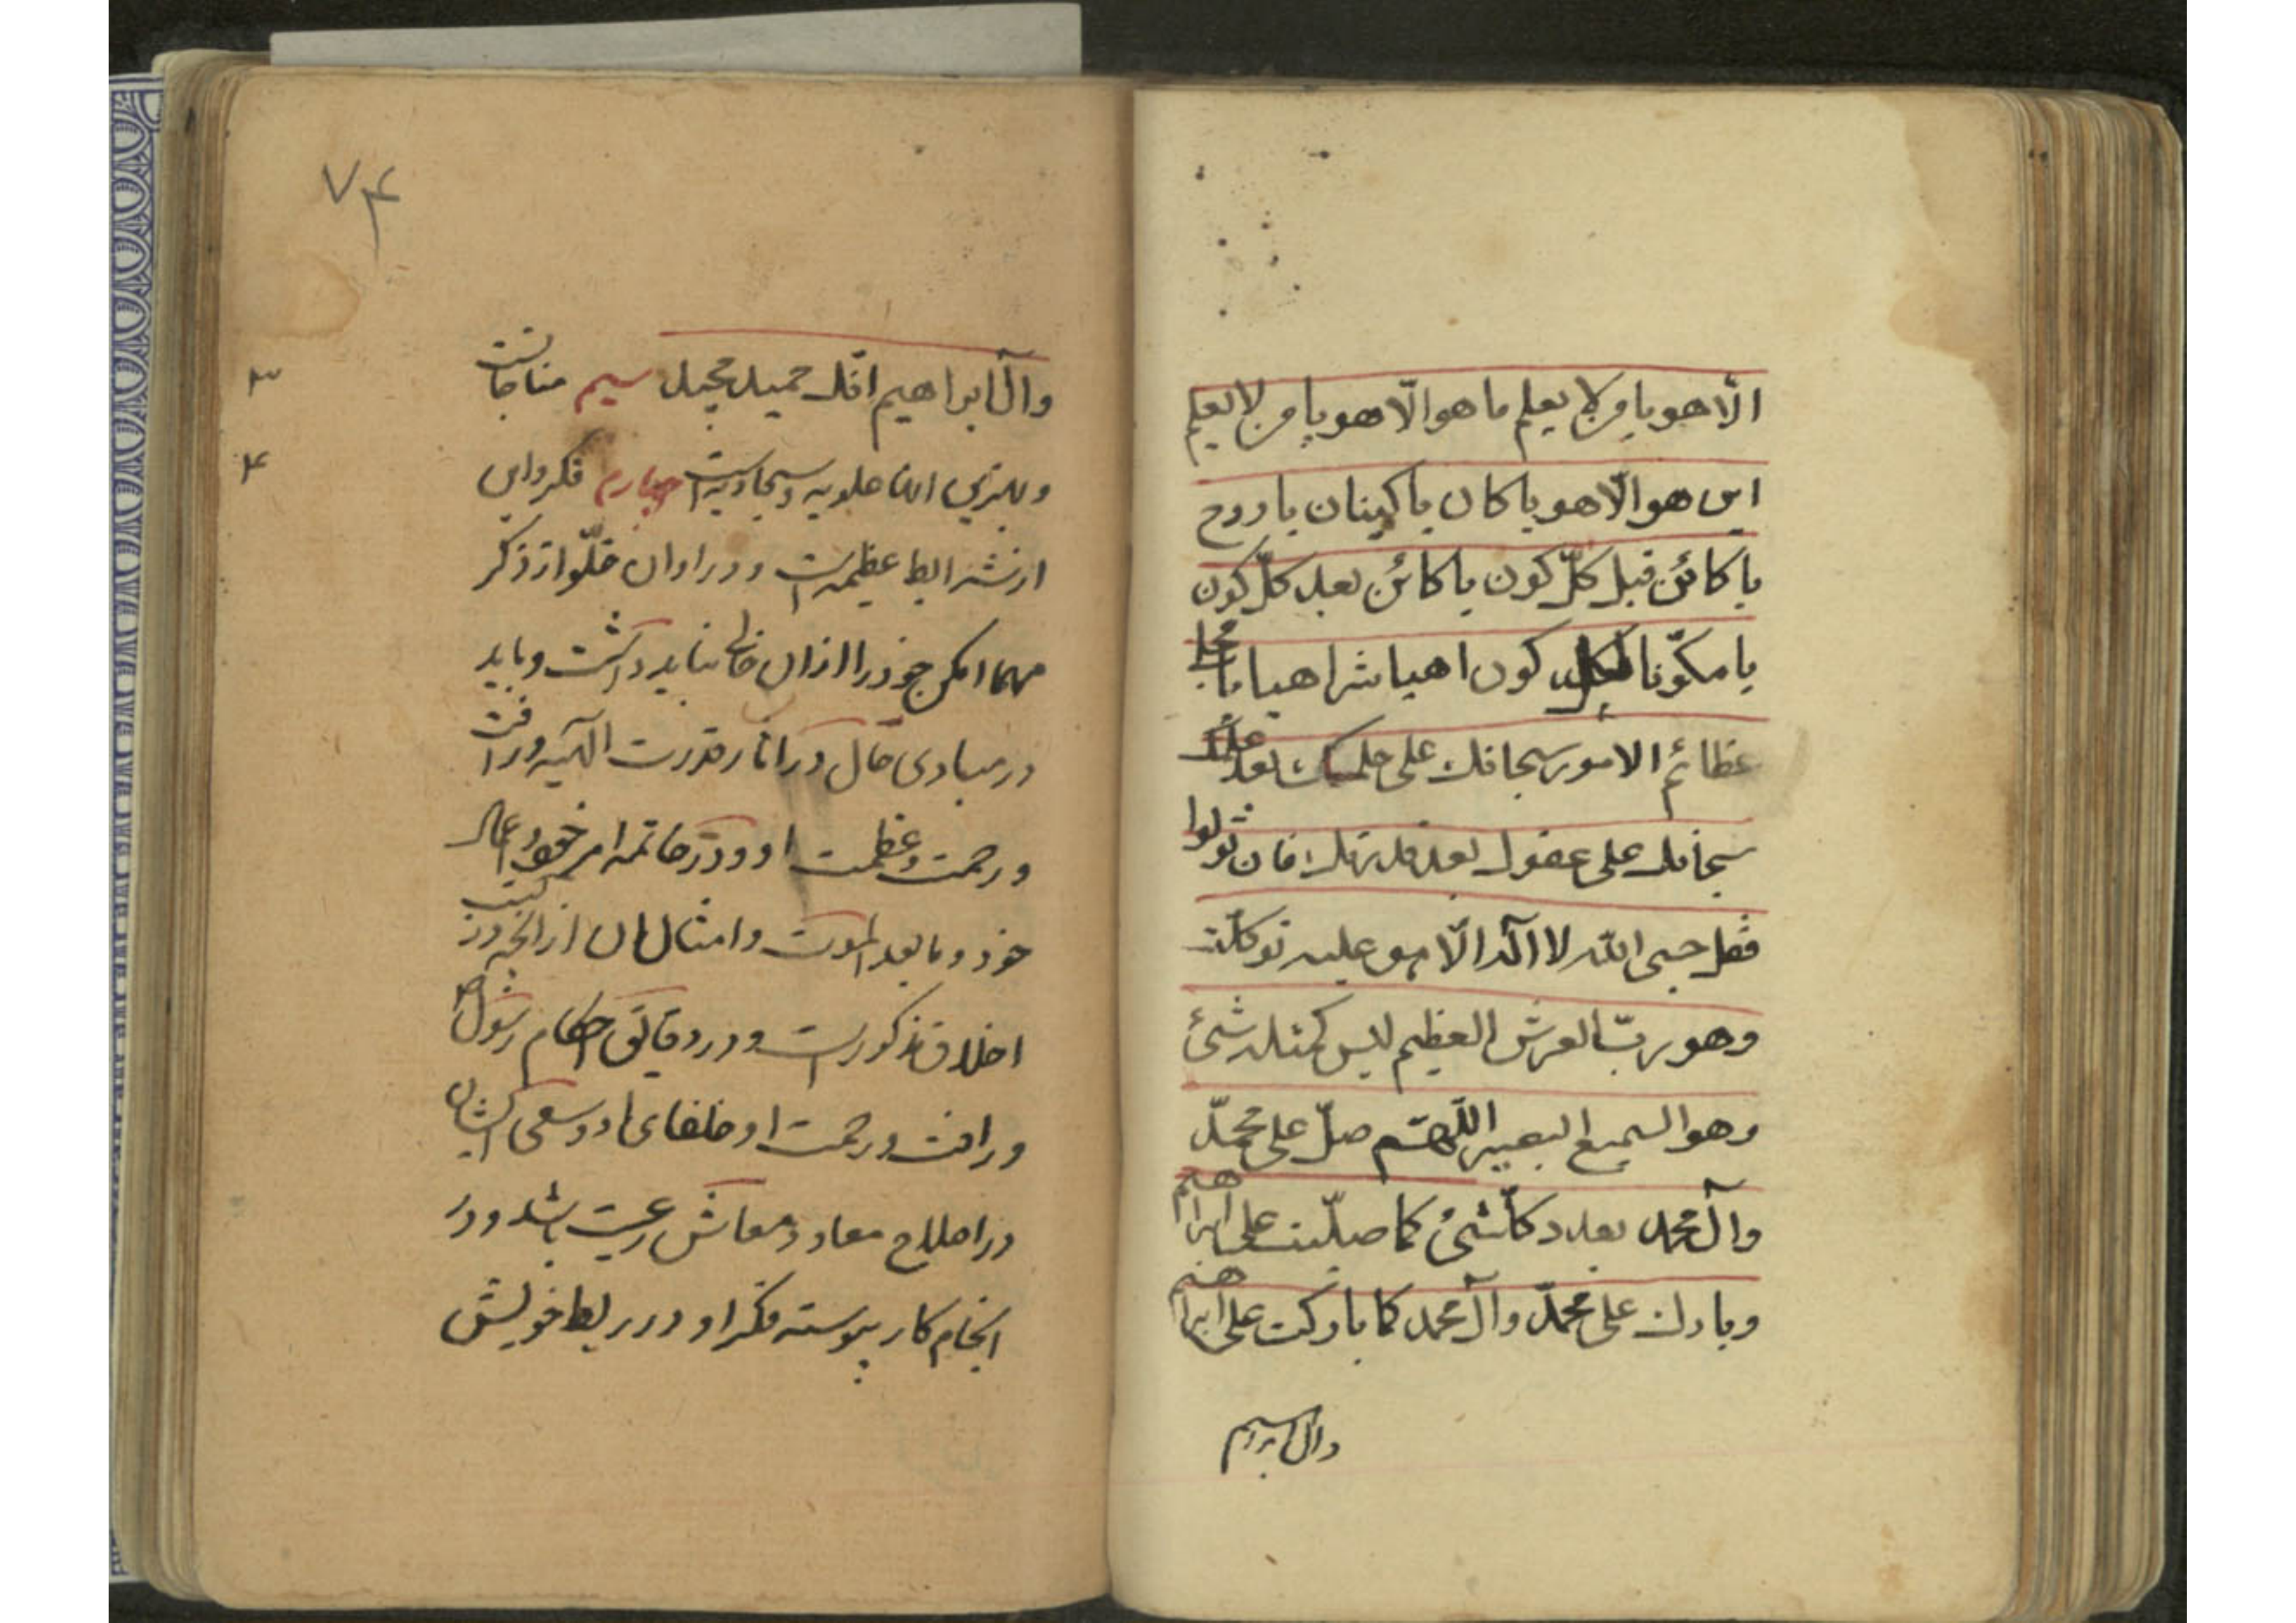 الّا هو یا من لا یعلم ما هو الّا هو یا من لا یعلم
این هو الّا هو یا کان یا کینان یا روح
یا کائن قبل کلّ کون یا کائن بعد کلّ کون
یا مکوّنا لکل کون اهیا شراهیا یا مجلی
عظائم الامور سبحانک علی حلمک بعد علمک
سبحانک علی عفوک بعد قدرتک فان تولوا
فقل حسبی الله لا اله الّا هو علیه توکلت
وهو ربّ العرش العظیم لیس کمثله شئ
وهو السمیع البصیر اللّهمّ صلّ علی محمّد
وآل محمد بعدد کلّ شئ کما صلّیت علی ابراهیم
وبارک علی محمّد وآل محمد کما بارکت علی ابراهیم
وآل ابراهیم
۷۴
وآل ابراهیم انّک حمید مجید سیم مناجاتست
۳
وبهترین آنها علویه وسجادیه است چهارم فکر واین
۴
از شرایط عظیمه است ودر اوان خلّو از ذکر
مهما امکن خود را از آن خالی نباید داشت وباید
در مبادی حال در آثار قدرت الهیه ورأفت
ورحمت وعظمت او ودر خاتمه امر خود واعمال
خود وما بعد الموت وامثال آن از آنچه در کتب
اخلاق مذکور است ودر دقایق احکام رسول
ورأفت ورحمت او وخلفای او وسعی ایشان
در اصلاح معاد ومعاش رعیت باشد ودر
انجام کار پیوسته فکر او در ربط خویش